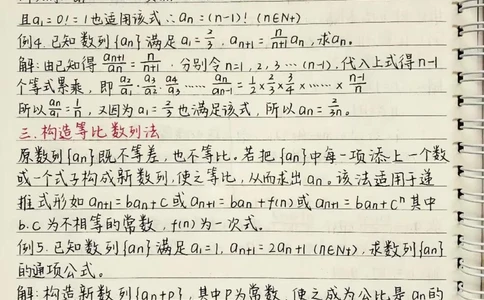 且a₁=0!=1也适用该式∴aₙ=(n-1)! (n∈N+)
例4.已知数列{aₙ}满足a₁=2/3, aₙ₊₁=n/(n+1)aₙ,求aₙ.
解:由已知得 aₙ₊₁/aₙ=n/(n+1).分别令n=1,2,3…(n-1),代入上式得n-1
个等式累乘,即 a₂/a₁·a₃/a₂·a₄/a₃……aₙ/aₙ₋₁=1/2×2/3×3/4×……×(n-1)/n
所以aₙ/a₁=1/n,又因为a₁=2/3也满足该式,所以aₙ=2/3n.
三.构造等比数列法
原数列{aₙ}既不等差,也不等比.若把{aₙ}中每一项添上一个数
或一个式子构成新数列,使之等比,从而求出aₙ.该法适用于递
推式形如aₙ₊₁=baₙ+c或aₙ₊₁=baₙ+f(n)或aₙ₊₁=baₙ+cⁿ其中
b.c为不相等的常数,f(n)为一次式.
例5.已知数列{aₙ}满足a₁=1,aₙ₊₁=2aₙ+1(n∈N+),求数列{aₙ}
的通项公式.
解:构造新数列{aₙ+p},其中p为常数,使之成为公比是aₙ的